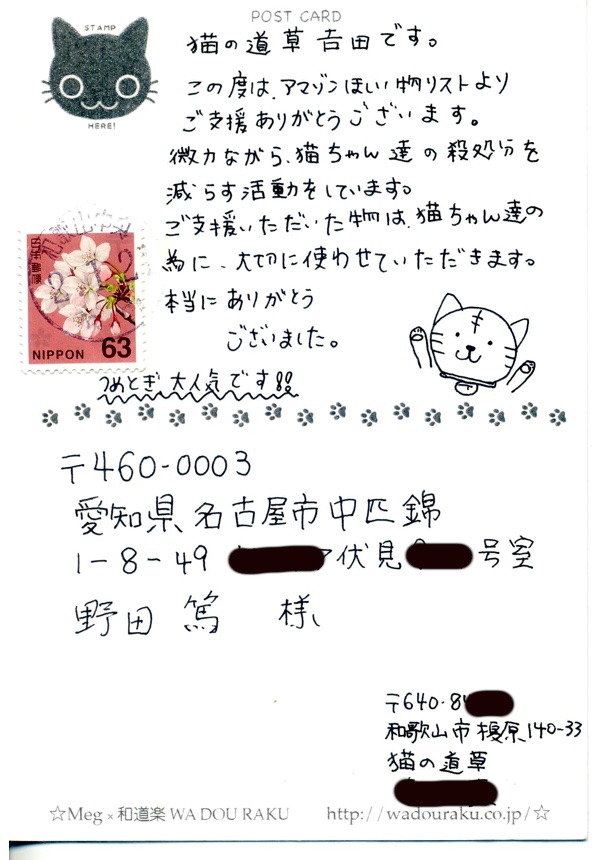 POST CARD
STAMP
HERE!
猫の道草 吉田です。
この度は、アマゾンほしい物リストより
ご支援ありがとうございます。
微力ながら、猫ちゃん達の殺処分を
減らす活動をしています。
ご支援いただいた物は、猫ちゃん達の
為に、大切に使わせていただきます。
本当にありがとう
ございました。
つめとぎ大人気です!!
日本郵便
NIPPON 63
〒460-0003
愛知県名古屋市中区錦
1-8-49 伏見 号室
野田 篤 様
〒640-84
和歌山市榎原140-33
猫の道草
☆Meg×和道楽 WA DOU RAKU http://wadouraku.co.jp/☆